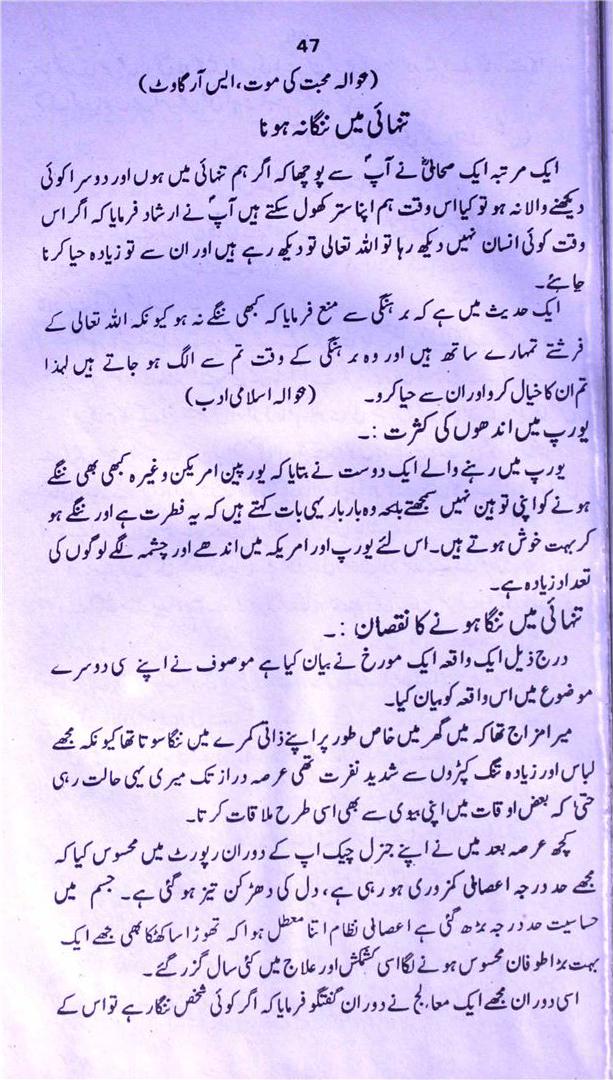 47
(حوالہ محبت کی موت، ایس آر گاوٹ)
تنہائی میں ننگا نہ ہونا
ایک مرتبہ ایک صحابیؓ نے آپؐ سے پوچھا کہ اگر ہم تنہائی میں ہوں اور دوسرا کوئی
دیکھنے والا نہ ہو تو کیا اس وقت ہم اپنا ستر کھول سکتے ہیں آپؐ نے ارشاد فرمایا کہ اگر اس
وقت کوئی انسان نہیں دیکھ رہا تو اللہ تعالی تو دیکھ رہے ہیں اور ان سے تو زیادہ حیا کرنا
چاہئے۔
ایک حدیث میں ہے کہ برہنگی سے منع فرمایا کہ کبھی ننگے نہ ہو کیونکہ اللہ تعالی کے
فرشتے تمہارے ساتھ ہیں اور وہ برہنگی کے وقت تم سے الگ ہو جاتے ہیں لہذا
تم ان کا خیال کرو اور ان سے حیا کرو۔ (حوالہ اسلامی ادب)
یورپ میں اندھوں کی کثرت :۔
یورپ میں رہنے والے ایک دوست نے بتایا کہ یورپین امریکن وغیرہ کبھی بھی ننگے
ہونے کو اپنی توہین نہیں سمجھتے بلکہ وہ بار بار یہی بات کہتے ہیں کہ یہ فطرت ہے اور ننگے ہو
کر بہت خوش ہوتے ہیں۔ اس لئے یورپ اور امریکہ میں اندھے اور چشمہ لگے لوگوں کی
تعداد زیادہ ہے۔
تنہائی میں ننگا ہونے کا نقصان :۔
درج ذیل ایک واقعہ ایک مورخ نے بیان کیا ہے موصوف نے اپنے سی دوسرے
موضوع میں اس واقعہ کو بیان کیا۔
میرا مزاج تھا کہ میں گھر میں خاص طور پر اپنے ذاتی کمرے میں ننگا سوتا تھا کیونکہ مجھے
لباس اور زیادہ تنگ کپڑوں سے شدید نفرت تھی عرصہ دراز تک میری یہی حالت رہی
حتیٰ کہ بعض اوقات میں اپنی بیوی سے بھی اسی طرح ملاقات کرتا۔
کچھ عرصہ بعد میں نے اپنے جنرل چیک اپ کے دوران رپورٹ میں محسوس کیا کہ
مجھے حد درجہ اعصابی کمزوری ہو رہی ہے، دل کی دھڑکن تیز ہو گئی ہے۔ جسم میں
حساسیت حد درجہ بڑھ گئی ہے اعصابی نظام اتنا معطل ہوا کہ تھوڑا سا کھٹکا بھی مجھے ایک
بہت بڑا طوفان محسوس ہونے لگا اسی کشمکش اور علاج میں کئی سال گزر گئے۔
اسی دوران مجھے ایک معالج نے دوران گفتگو فرمایا کہ اگر کوئی شخص ننگا رہے تو اس کے